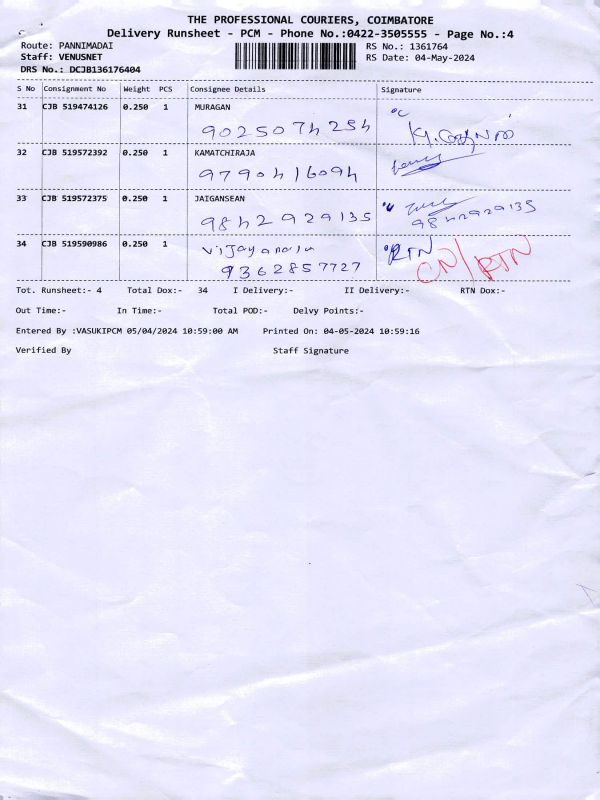 THE PROFESSIONAL COURIERS, COIMBATORE
Delivery Runsheet - PCM - Phone No.:0422-3505555 - Page No.:4
Route: PANNIMADAI
RS No.: 1361764
Staff: VENUSNET
RS Date: 04-May-2024
DRS No.: DCJB136176404
S No Consignment No Weight PCS Consignee Details Signature
31 CJB 519474126 0.250 1 MURAGAN
9025074254
32 CJB 519572392 0.250 1 KAMATCHIRAJA
9790416094
33 CJB 519572375 0.250 1 JAIGANSEAN
9842929135 9842929135
34 CJB 519590986 0.250 1 RTN CN/RTN
9362857727
Tot. Runsheet:- 4 Total Dox:- 34 I Delivery:- II Delivery:- RTN Dox:-
Out Time:- In Time:- Total POD:- Delvy Points:-
Entered By :VASUKIPCM 05/04/2024 10:59:00 AM Printed On: 04-05-2024 10:59:16
Verified By Staff Signature